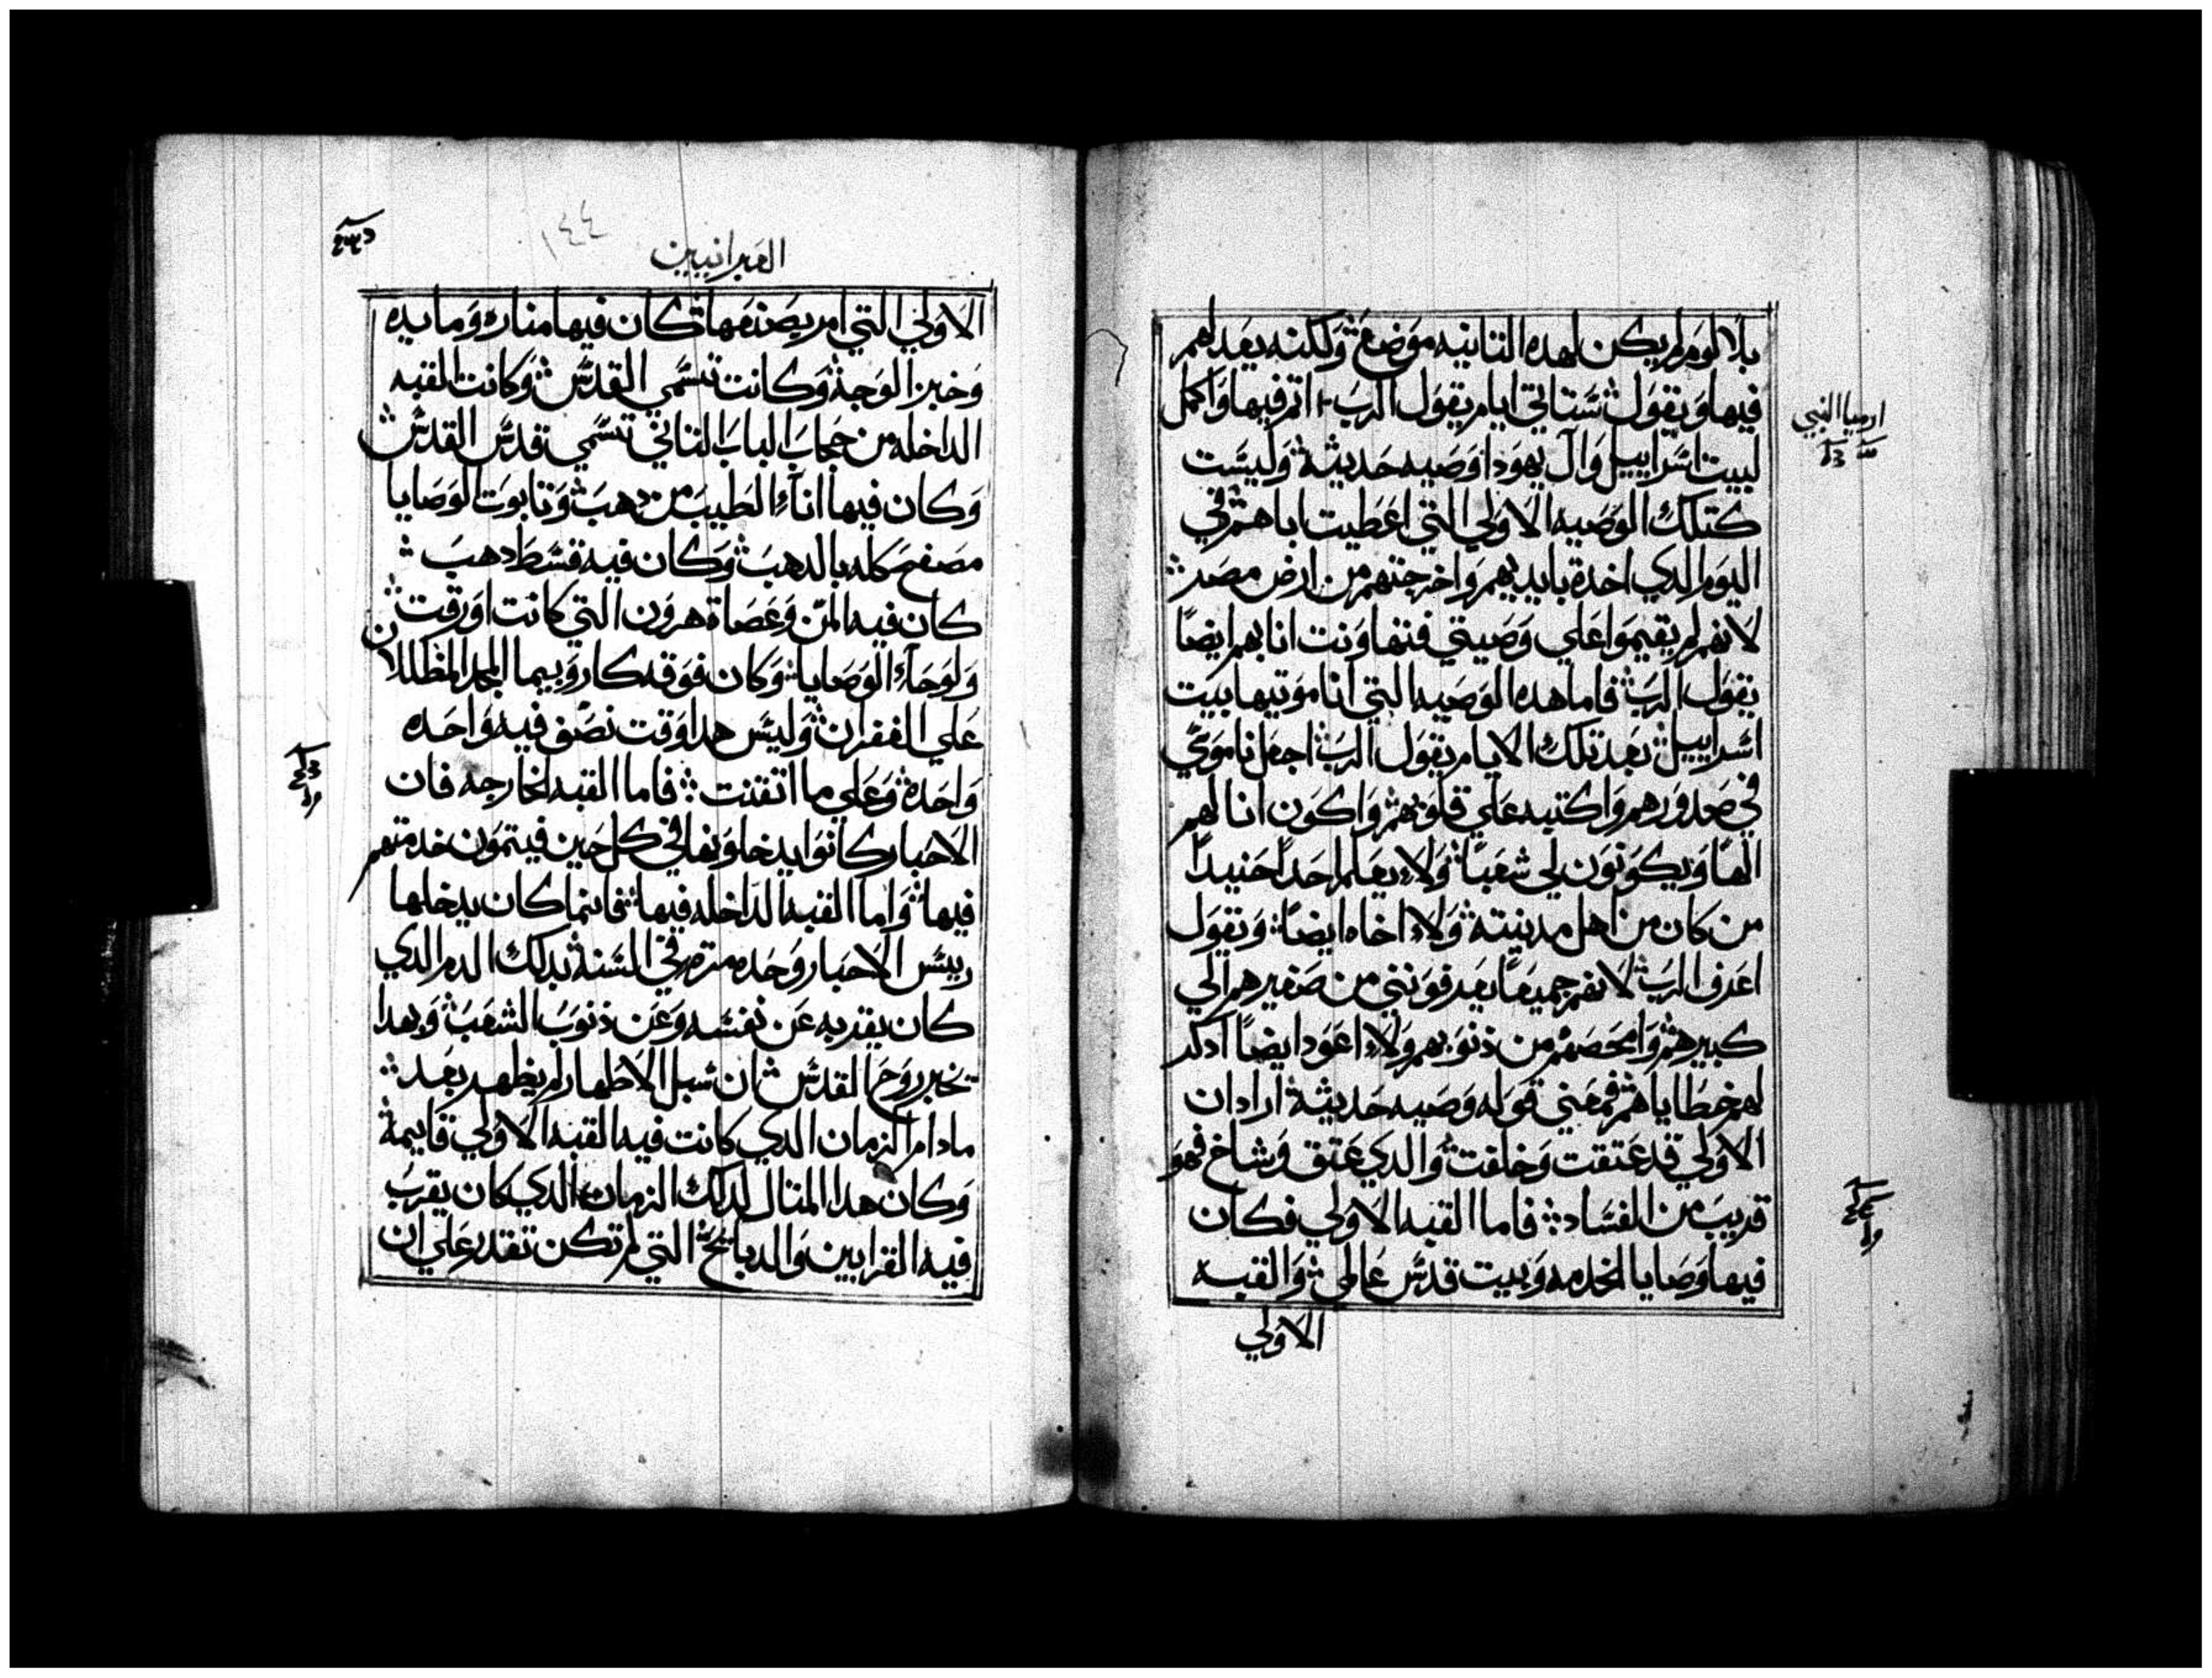 بلا لوم لم يكن لهده التانيه موضع ولكنه يعدلهم
فيها ويقول ستاتي ايام يقول الرب اتم فيها واكمل
لبيت اسراييل وال يهودا وصيه حديثة وليست
كتلك الوصيه الاولي التي اعطيت اباهم في
اليوم الدي اخدة بايديهم واخرجتهم من ارض مصر
لانهم لم يقيموا علي وصيتي فتهاونت انا بهم ايضا
يقول الرب فاما هده الوصيه التي انا موتيها بيت
اسراييل بعد تلك الايام يقول الرب اجعل ناموسي
في صدورهم واكتبه علي قلوبهم واكون انا لهم
الها ويكونون لي شعبا ولا يعلم احدا حنيدا
من كان من اهل مدينته ولا اخاه ايضا ويقول
اعرف الرب لانهم جميعا يعرفونني من صغيرهم الي
كبيرهم وامحصهم من ذنوبهم ولا اعود ايضا ادكر
لهم خطاياهم فمعني قوله وصيه حديثة اراد ان
الاولي قد عتقت وخلقت والدي عتق وشاخ فهو
قريب من الفساد فاما القبه الاولي فكان
فيها وصايا الخدمه وبيت قدس عالمي والقبه
الاولي
ارميا النبي
العبرانيين
١٤٤
الاولي التي امر بصنعها كان فيها مناره ومايده
وخبز الوجة وكانت تسمي القدس وكانت القبه
الداخله من حجاب الباب التاني تسمي قدس القدس
وكان فيها اناء الطيب من دهب وتابوت الوصايا
مصفح كله بالدهب وكان فيه قسط دهب
كان فيه المن وعصاة هرون التي كانت اورقت
ولوحاء الوصايا وكان فوقه كاروبيما المجد المظللان
علي الغفران وليس هدا وقت نصف فيه واحده
واحدة وعلي ما اتقنت فاما القبه الخارجه فان
الاحبار كانوا يدخلونها في كل حين فيتمون خدمتهم
فيها واما القبه الداخله فيها فانما كان يدخلها
رييس الاحبار وحده مره في السنة بدلك الدم الدي
كان يقربه عن نفسه وعن ذنوب الشعب وبهدا
تخبر روح القدس ان سبل الاطهار لم يظهر بعد
مادام الزمان الدي كانت فيه القبه الاولي قايمة
وكان هدا المتال لدلك الزمان الدي كان يقرب
فيه القرابين والدبايح التي لم تكن تقدر علي ان